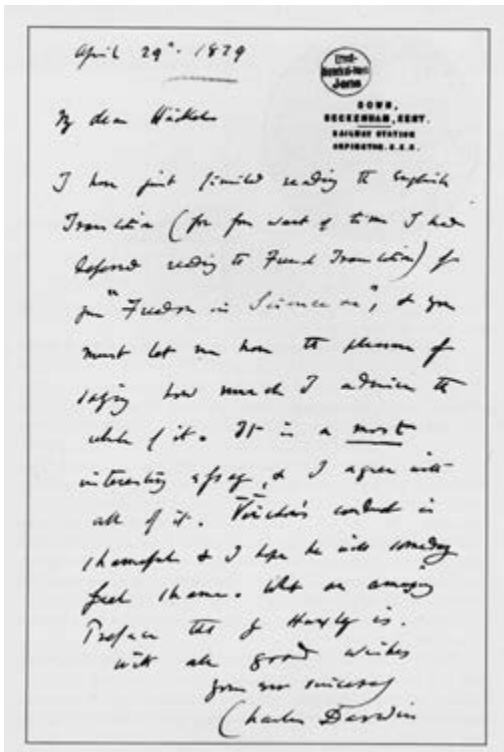 April 29th. 1879
Ernst-
Haeckel-Haus
Jena
DOWN,
BECKENHAM, KENT.
RAILWAY STATION
ORPINGTON. S.E.R.
My dear Häckel
I have just finished reading the English
Translation (for from want of time I had
deferred reading the French Translation) of
your "Freedom in Science &c", & you
must let me have the pleasure of
saying how much I admire the
whole of it. It is a most
interesting essay, & I agree with
all of it. Virchow's conduct is
shameful & I hope he will someday
feel shame. What an amusing
Preface that of Huxley is.
With all good wishes
yours sincerely
Charles Darwin